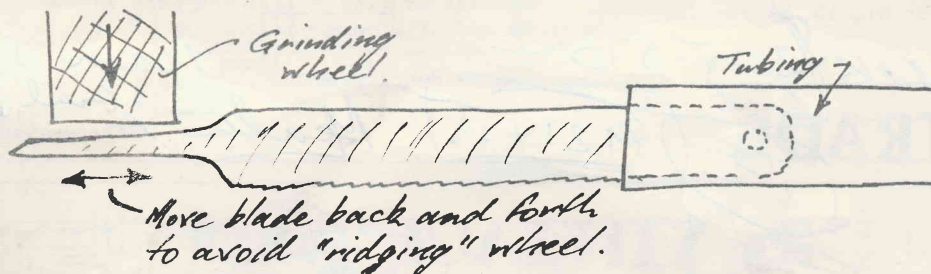 Grinding
wheel.
Tubing
Move blade back and forth
to avoid "ridging" wheel.